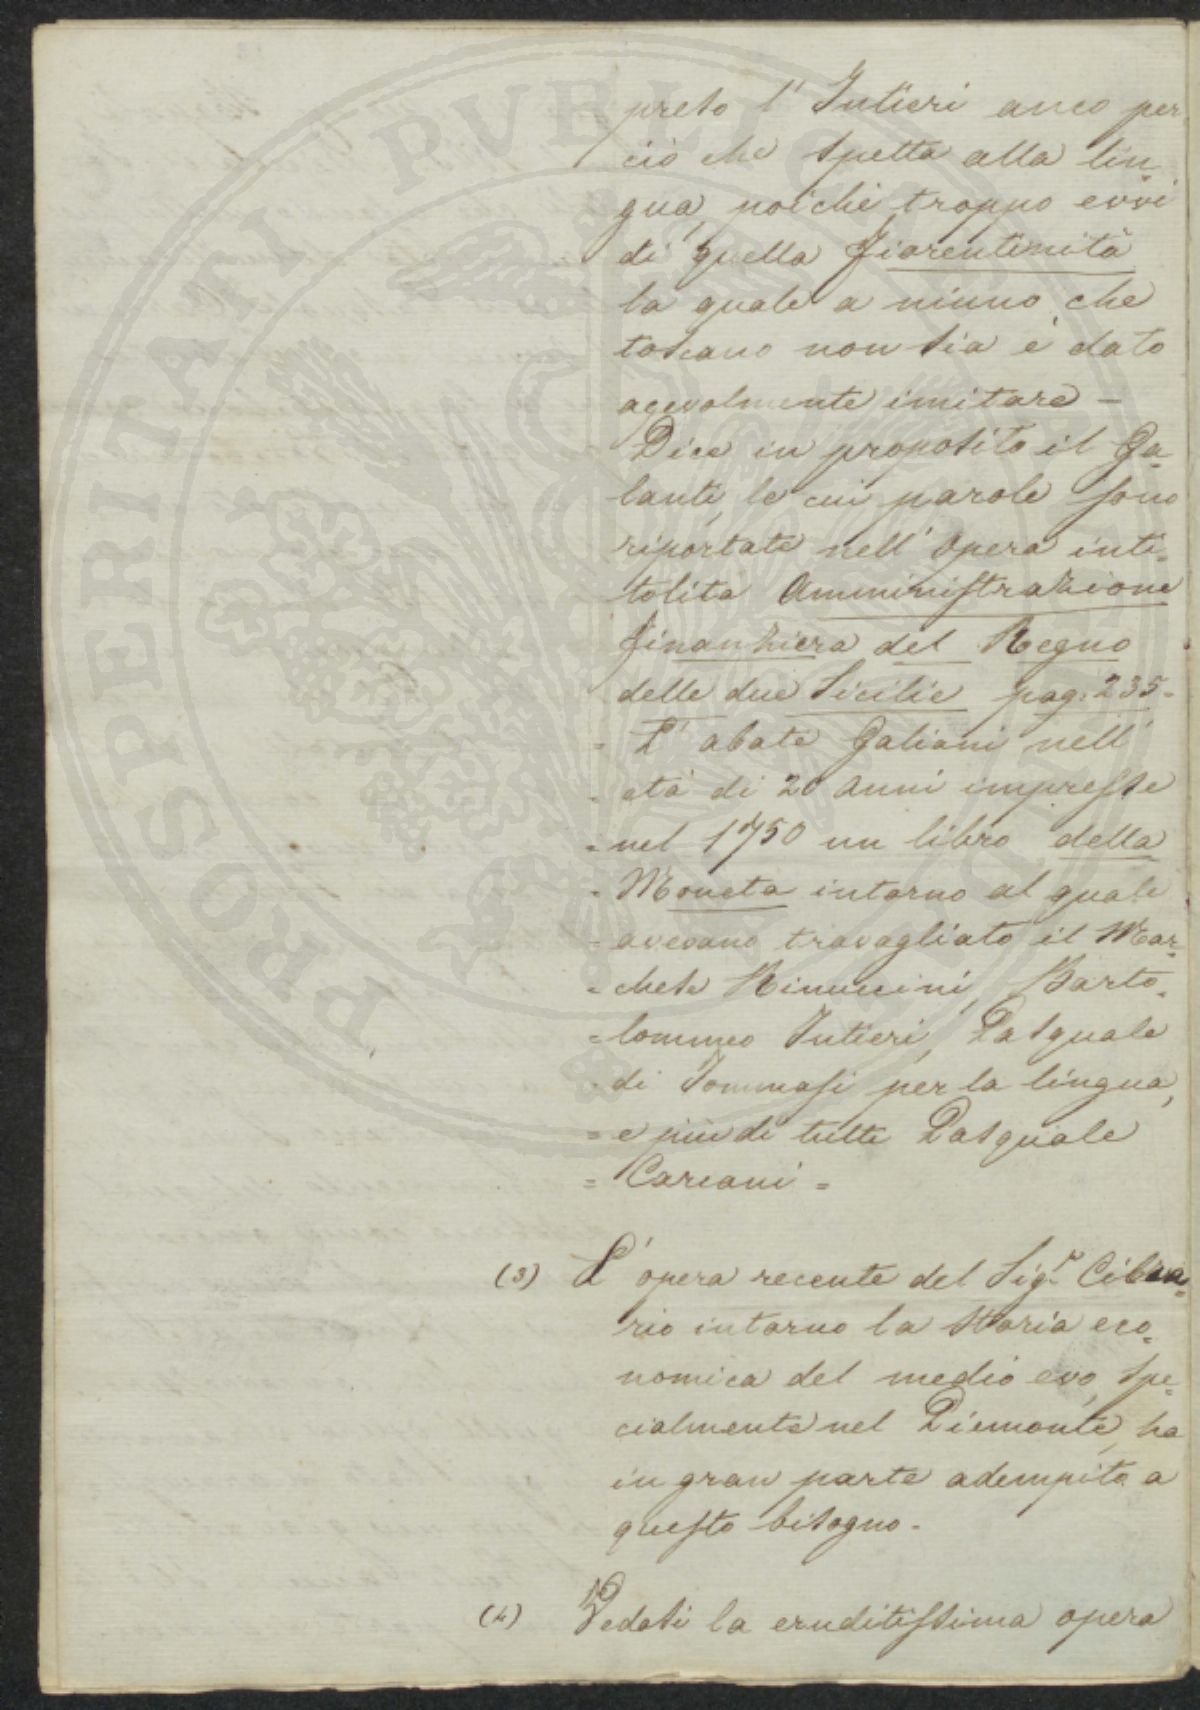 preso l' Intieri anco per
ciò che spetta alla lin=
gua, poichè troppo evvi
di quella fiorentinità
la quale a niuno che
toscano non sia è dato
agevolmente imitare –
Dice in proposito il Ga=
lanti, le cui parole sono
riportate nell' opera inti=
tolita Amministrazione
finanziera del Regno
delle due Sicilie pag. 235=
= L' abate Galiani nell'
= età di 20 anni impresse
= nel 1750 un libro della
= Moneta intorno al quale
= avevano travagliato il Mar=
= chese Rinuccini, Barto=
= lommeo Intieri, Pasquale
= di Tommasi per la lingua,
= e più di tutti Pasquale
= Carcani =
(3) L' opera recente del Sig.r Cibra=
rio intorno la storia eco=
nomica del medio evo, spe=
cialmente nel Piemonte, ha
in gran parte adempito a
questo bisogno.
(4) Vedasi la eruditissima opera
PROSPERITATI PVBLICAE